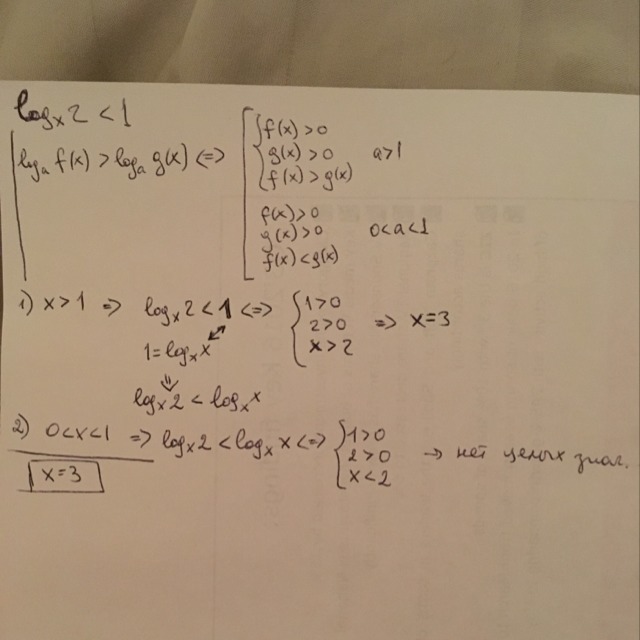 logₓ2 < 1
logₐ f(x) > logₐ g(x) <=>
f(x) > 0
g(x) > 0   a>1
f(x) > g(x)
f(x) > 0
g(x) > 0   0<a<1
f(x) < g(x)
1) x > 1 => logₓ2 < 1 <=> { 1>0
2>0 => x=3
x>2
1 = logₓx
logₓ2 < logₓx
2) 0<x<1 => logₓ2 < logₓx <=> { 1>0
2>0 → нет целых знач.
x<2
x=3